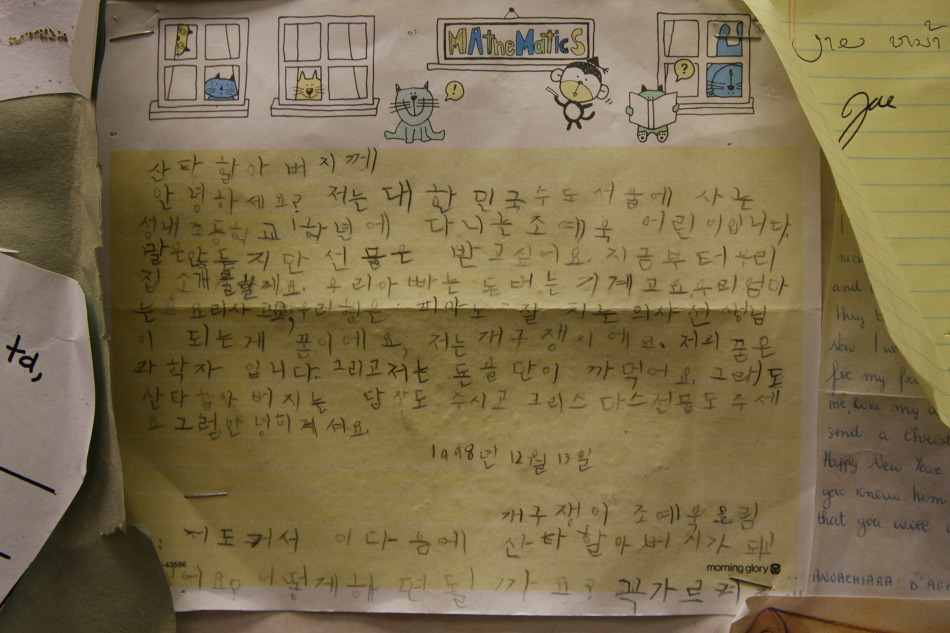 MAtheMaticS
!
?
Jae
산타할아버지께
안녕하세요? 저는 대한민국 수도 서울에 사는
성내초등학교 1학년에 다니는 조예욱 어린이입니다.
말은 않듣지만 선물은 받고싶어요. 지금부터 우리
집 소개를할게요. 우리아빠는 돈버는 기계고요, 우리엄마
는 요리사고요, 우리형은 피아노 잘 치는 의사선생님
이 되는게 꿈이에요. 저는 개구쟁이에요. 저의 꿈은
과학자 입니다. 그리고저는 돈을 많이 까먹어요. 그래도
산타할아버지는 답장도 주시고 크리스마스선물도 주세
요 그럼안녕히계셔요.
1998년 12월 13일
개구쟁이 조예욱올림
저도커서 이다음에 산타할아버지가 되고
어떻게해 될까요? 꼭가르켜
-43586
morning glory
ta,
and
they
Now I we
for my
me, like my
send a Christ
Happy New Year
you knew him
that you will
ANNACHIARA D'AG